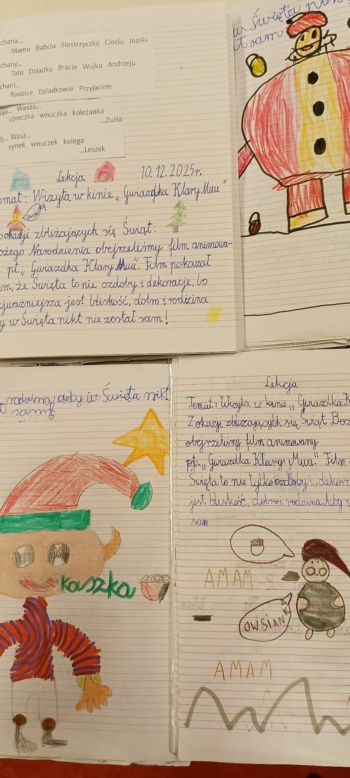 ...chana...
Mamo Babciu Siostrzyczko Ciociu Joasiu
...chany...
Tato Dziadku Bracie Wujku Andrzeju
...chani...
Rodzice Dziadkowie Przyjaciele
Wasza...
córeczka wnuczka koleżanka
...Zuzia
Wasz...
synek wnuczek kolega
...Leszek
Lekcja 10.12.2025r.
emat: Wizyta w kinie „Gwiazdka Klary Muu"
okazji zbliżających się Świąt
ożego Narodzenia obejrzeliśmy film animowa-
pt. „Gwiazdka Klary Muu". Film pokazał
am, że Święta to nie ozdoby i dekoracje, bo
jważniejsza jest bliskość, dobro i rodzina
y w Święta nikt nie został sam!
w Święta nik
t sam
rodzina, żeby w Święta nikt
sam
kaszka
Lekcja
Temat: Wizyta w kinie „Gwiazdka K
Z okazji zbliżających się Świąt Boż
obejrzeliśmy film animowany
pt. „Gwiazdka Klary Muu". Film
Święta to nie tylko ozdoby i dekor
jest bliskość, dobro i rodzina
sam
AMAM
OWSIAN
AMAM